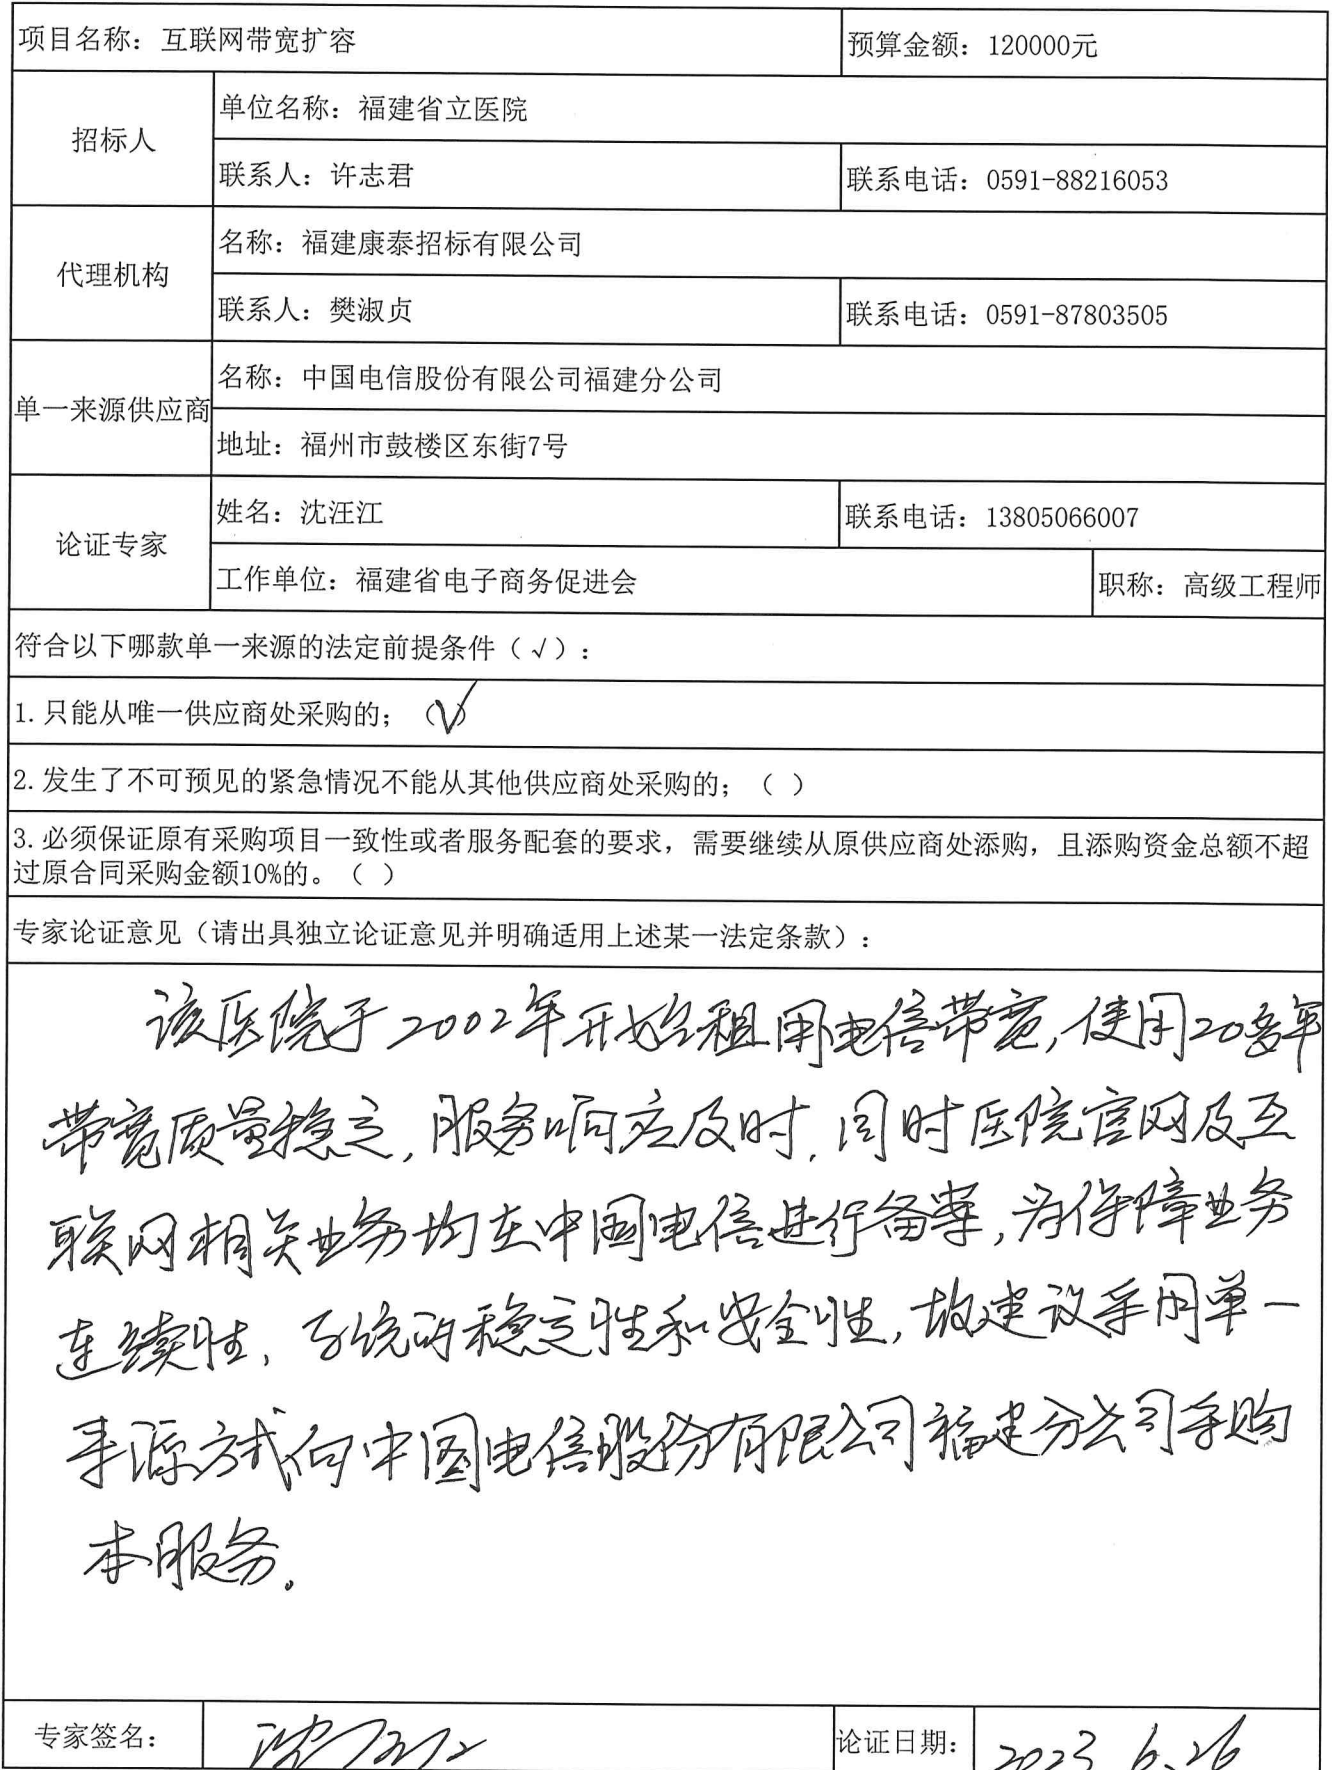 项目名称：互联网带宽扩容
预算金额：120000元
招标人
单位名称：福建省立医院
联系人：许志君
联系电话：0591-88216053
代理机构
名称：福建康泰招标有限公司
联系人：樊淑贞
联系电话：0591-87803505
单一来源供应商
名称：中国电信股份有限公司福建分公司
地址：福州市鼓楼区东街7号
论证专家
姓名：沈汪江
联系电话：13805066007
工作单位：福建省电子商务促进会
职称：高级工程师
符合以下哪款单一来源的法定前提条件（√）：
1.只能从唯一供应商处采购的；（√）
2.发生了不可预见的紧急情况不能从其他供应商处采购的；（ ）
3.必须保证原有采购项目一致性或者服务配套的要求，需要继续从原供应商处添购，且添购资金总额不超
过原合同采购金额10%的。（ ）
专家论证意见（请出具独立论证意见并明确适用上述某一法定条款）：
该医院于2002年开始租用电信带宽，使用20多年
带宽质量稳定，服务响应及时，同时医院官网及互
联网相关业务均在中国电信进行备案，为保障业务
连续性，系统的稳定性和安全性，故建议采用单一
来源方式向中国电信股份有限公司福建分公司采购
本服务。
专家签名：
沈汪江
论证日期：
2023 6.26